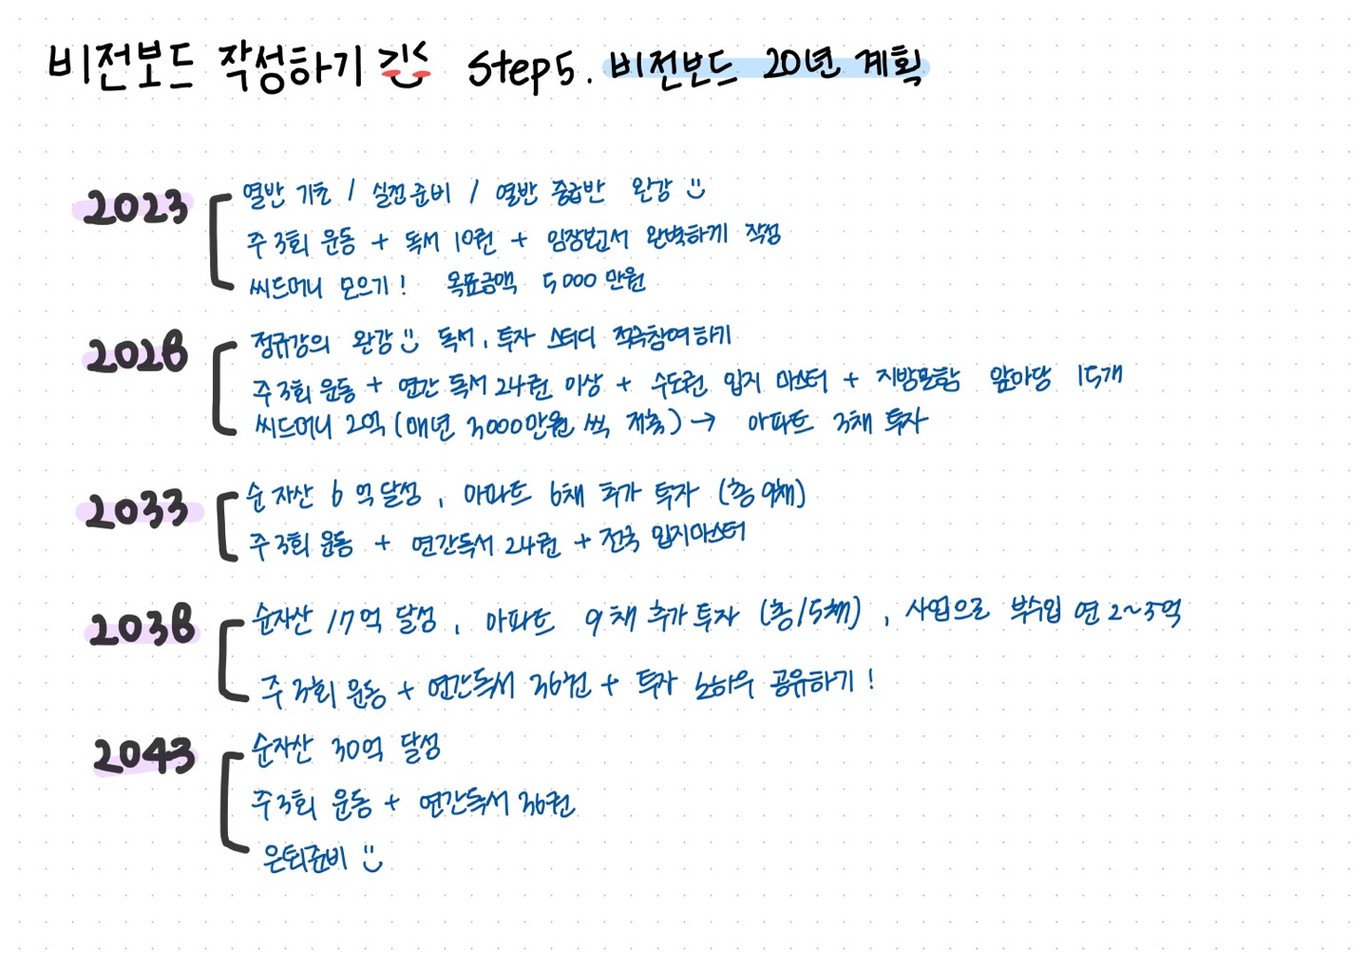 비전보드 작성하기 Step5. 비전보드 20년 계획
2023
열반 기초 / 실전준비 / 열반 중급반 완강
주 3회 운동 + 독서 10권 + 임장보고서 완벽하게 작성
씨드머니 모으기! 목표금액 5000만원
2028
정규강의 완강 독서, 투자 스터디 적극참여하기
주 3회 운동 + 연간 독서 24권 이상 + 수도권 입지 마스터 + 지방포함 앞마당 15개
씨드머니 2억 (매년 3000만원 씩 저축) → 아파트 3채 투자
2033
순 자산 6억 달성, 아파트 6채 추가 투자 (총 9채)
주 3회 운동 + 연간독서 24권 + 전국 입지마스터
2038
순자산 17억 달성, 아파트 9채 추가 투자 (총 15채), 사업으로 부수입 연 2~3억
주 3회 운동 + 연간독서 36권 + 투자 노하우 공유하기!
2043
순자산 30억 달성
주 3회 운동 + 연간독서 36권
은퇴준비